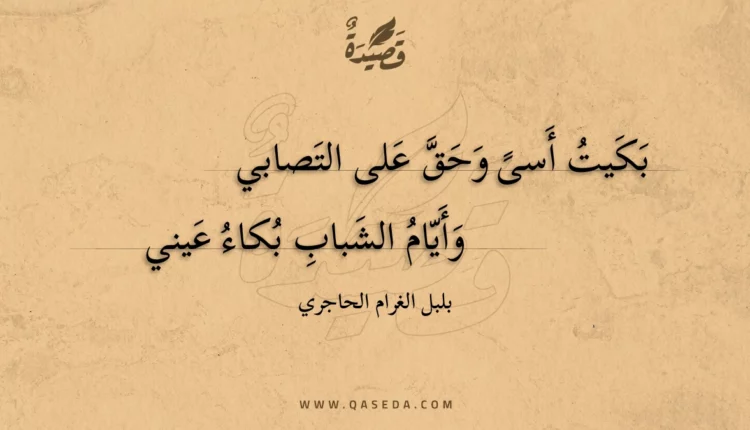 قَصِيْدَةٌ
بَكَيتُ أَسىً وَحَقَّ عَلى التَصابي
وَأَيّامُ الشَبابِ بُكاءُ عَيني
بلبل الغرام الحاجري
WWW.QASEDA.COM